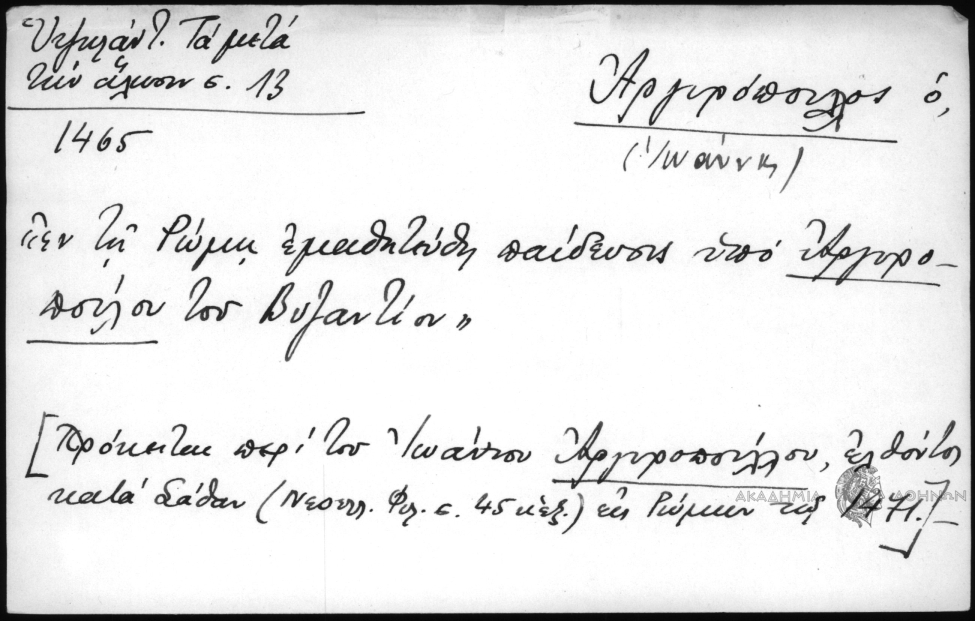 Ὑψηλάντ. Τά μετά
τήν ἅλωσιν σ. 13
1465
Ἀργυρόπουλος ὁ,
(Ἰωάννης)
«ἐν τῇ Ῥώμῃ ἐμαθητεύθη παίδευσις ὑπό Ἀργυρο-
πούλου τοῦ Βυζαντίου»
[Πρόκειται περί τοῦ Ἰωάννου Ἀργυροπούλου, ἐλθόντος
κατά Σάθαν (Νεοελλ. Φιλ. σ. 45 κἑξ.) εἰς Ῥώμην τῷ 1471.]
ΑΚΑΔΗΜΙΑ ΑΘΗΝΩΝ